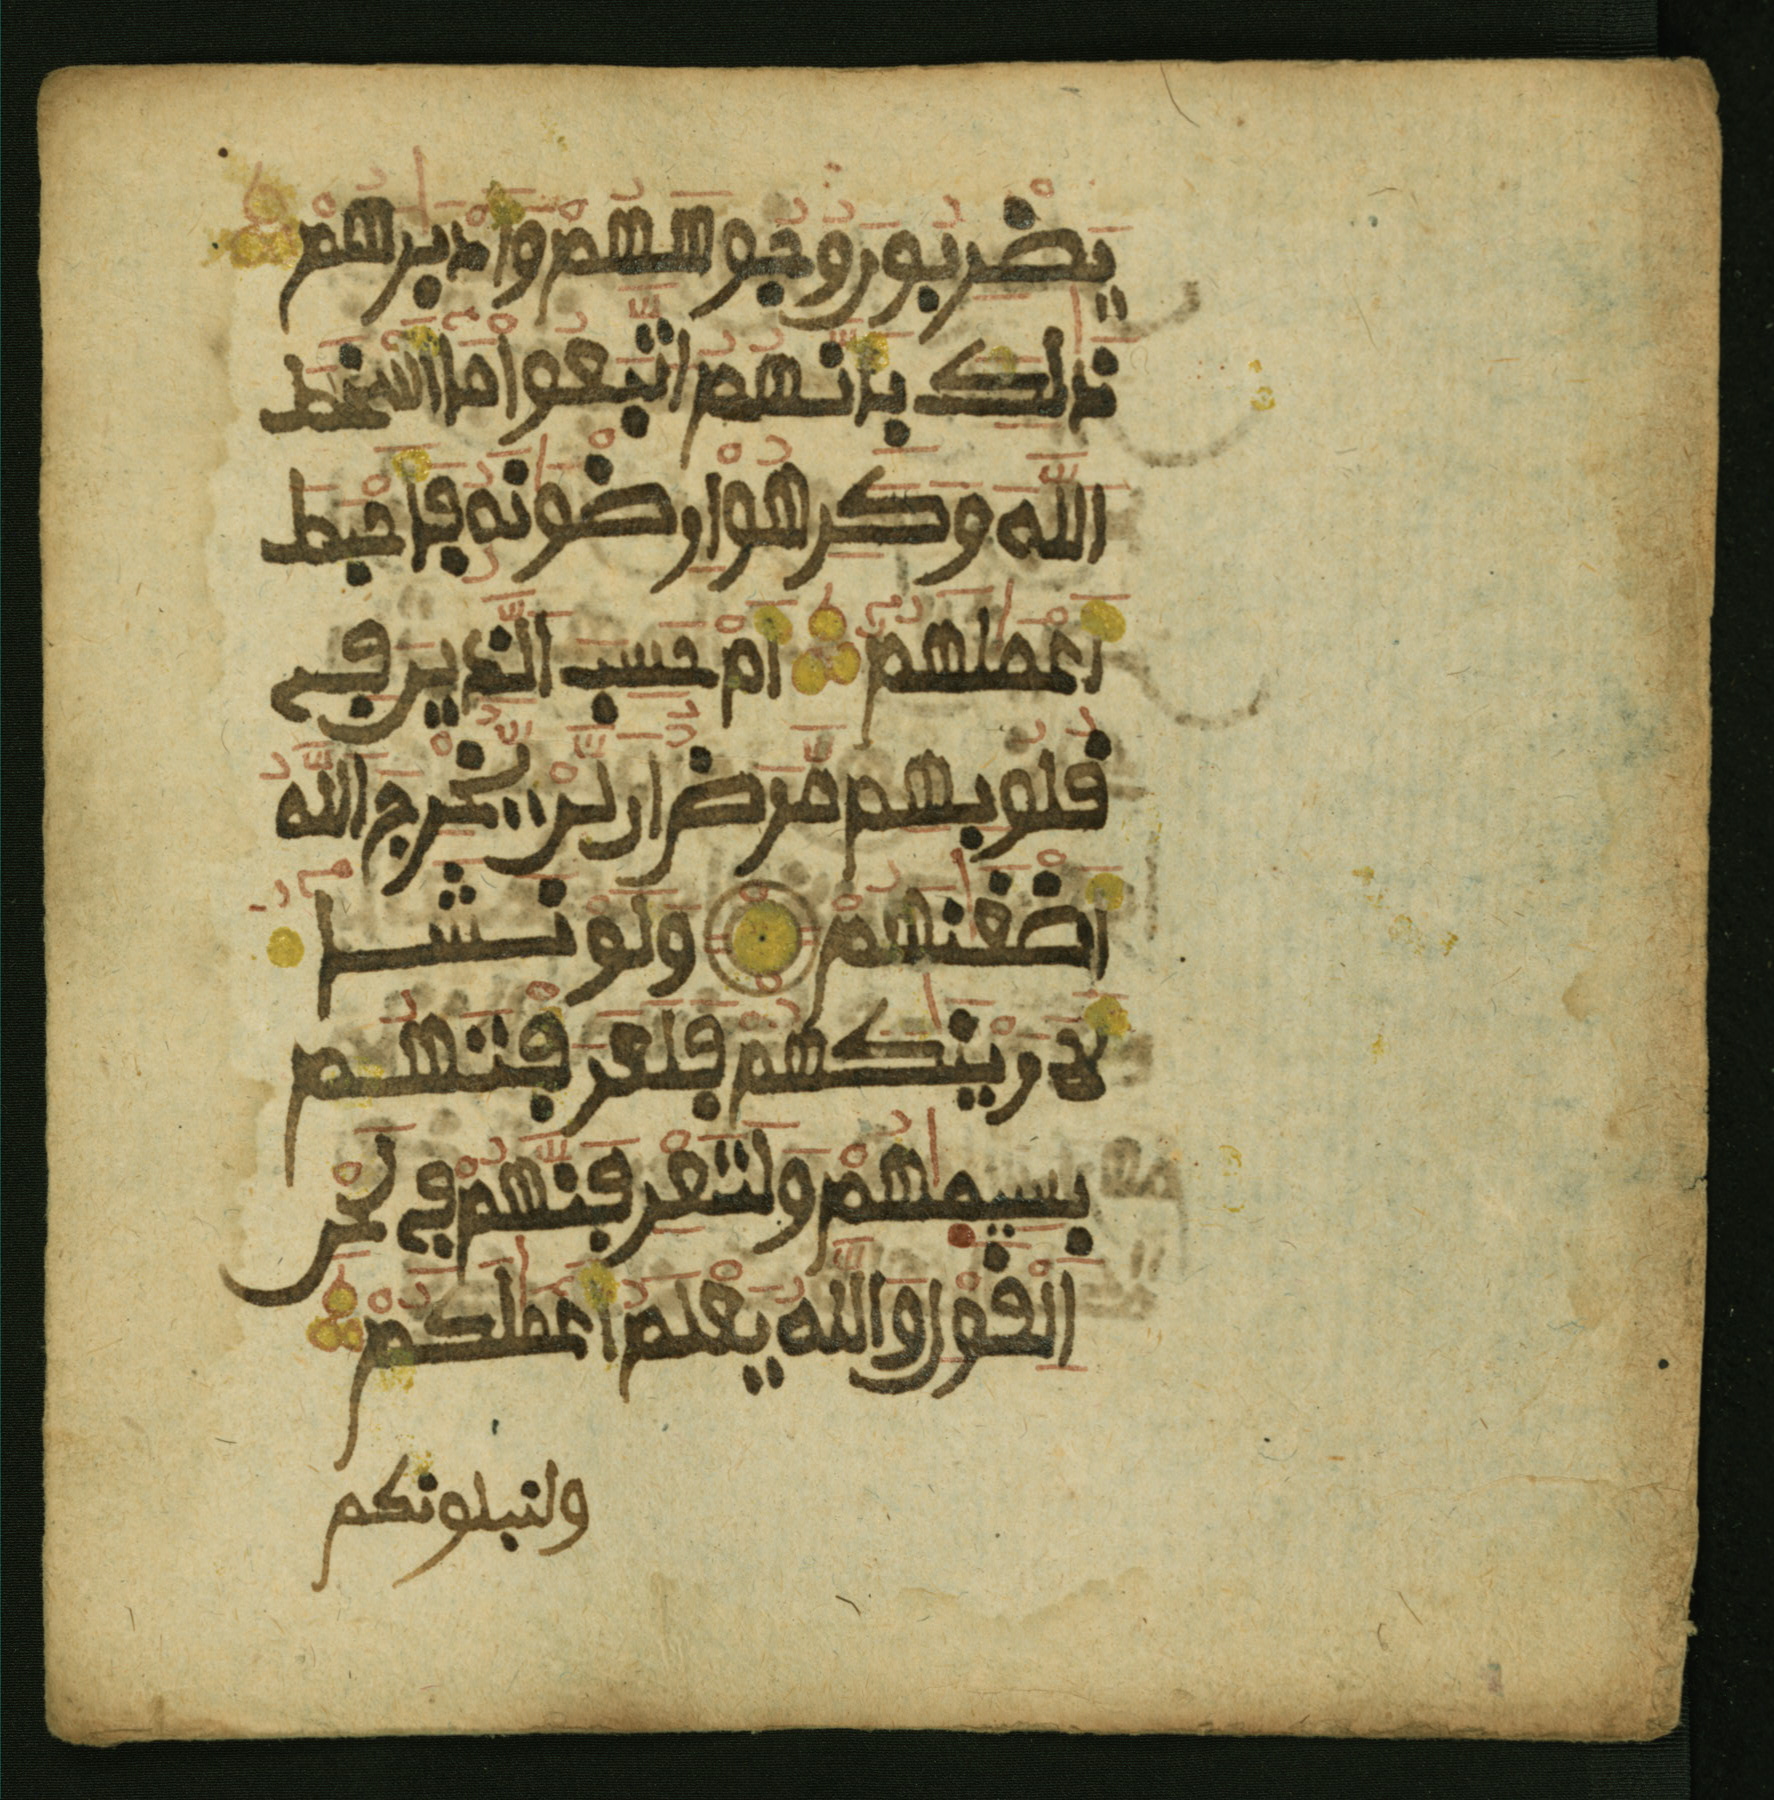 يَضْرِبُونَ وُجُوهَهُمْ وَأَدْبَٰرَهُمْ
ذَٰلِكَ بِأَنَّهُمُ اتَّبَعُوا مَا أَسْخَطَ
اللَّهَ وَكَرِهُوا رِضْوَٰنَهُ فَأَحْبَطَ
أَعْمَٰلَهُمْ أَمْ حَسِبَ الَّذِينَ فِي
قُلُوبِهِم مَّرَضٌ أَن لَّن يُّخْرِجَ اللَّهُ
أَضْغَٰنَهُمْ وَلَوْ نَشَاءُ
لَأَرَيْنَٰكَهُمْ فَلَعَرَفْتَهُم
بِسِيمَٰهُمْ وَلَتَعْرِفَنَّهُمْ فِي لَحْنِ
الْقَوْلِ وَاللَّهُ يَعْلَمُ أَعْمَٰلَكُمْ
ولنبلونكم